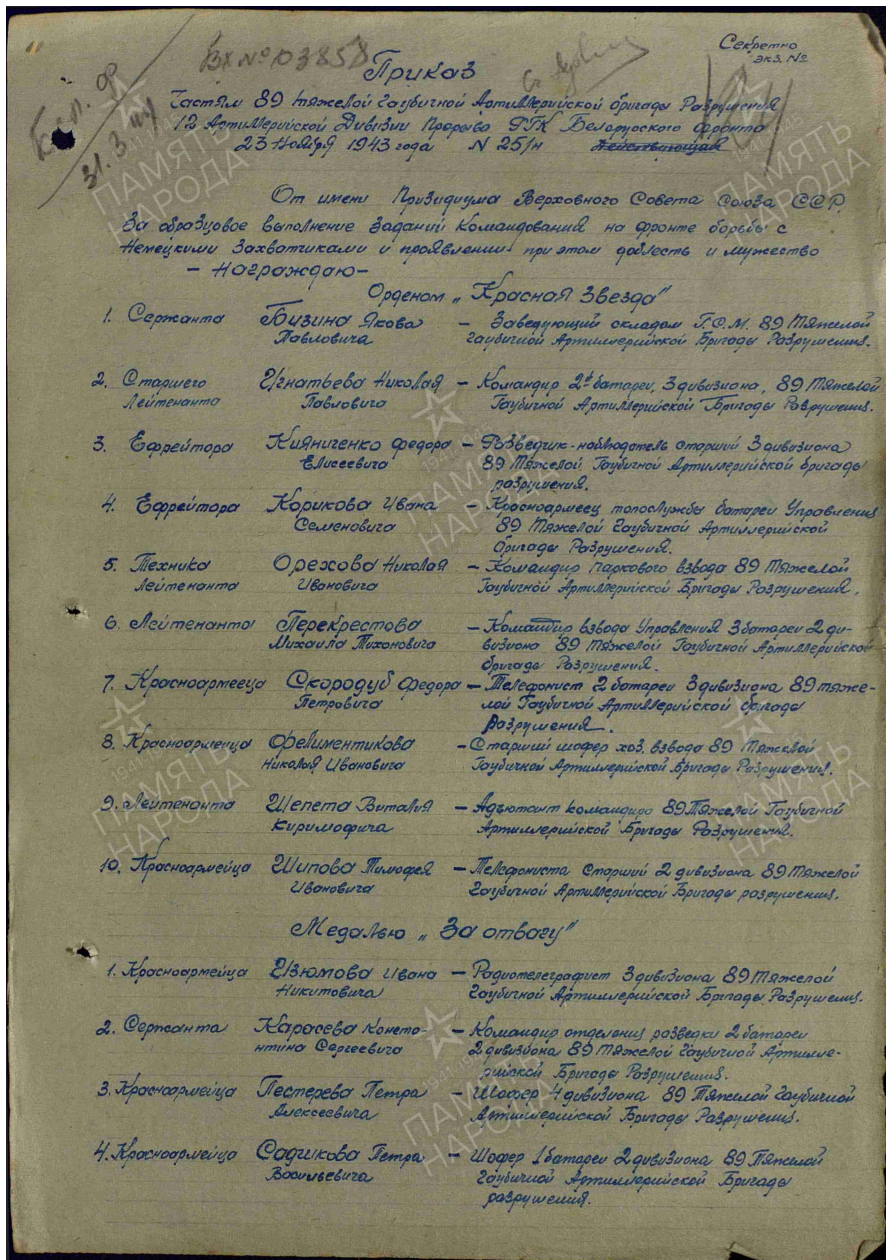 Секретно
экз. №
Вх № 03858
31.3.44
Приказ
Частям 89 тяжелой Гаубичной Артиллерийской бригады Разрушения
12 Артиллерийской Дивизии Прорыва РГК Белоруского фронта
23 Ноября 1943 года N 25/н Действующая
От имени Призидиума Верховного Совета Союза ССР,
За образцовое выполнение Заданий Командования на фронте борьбы с
Немецкими Захватчиками и проявлении при этом доблесть и мужество
- Награждаю -
Орденом „Красная Звезда"
1. Сержанта Бизина Якова — Заведующий складом Г.С.М. 89 Тяжелой
Павловича Гаубичной Артиллерийской Бригады Разрушения.
2. Старшего Игнатьева Николая — Командир 2й батареи, 3 дивизиона, 89 Тяжелой
Лейтенанта Павловича Гаубичной Артиллерийской Бригады Разрушения.
3. Ефрейтора Кияниченко Федора — Разведчик-наблюдатель старший 3 дивизиона
Елисеевича 89 Тяжелой Гаубичной Артиллерийской бригады
разрушения.
4. Ефрейтора Корикова Ивана — Красноармеец топослужбы батареи Управления
Семеновича 89 Тяжелой Гаубичной Артиллерийской
бригады Разрушения.
5. Техника Орехова Николая — Командир паркового взвода 89 Тяжелой
Лейтенанта Ивановича Гаубичной Артиллерийской Бригады Разрушения.
6. Лейтенанта Перекрестова — Командир взвода Управления 3 батареи 2 ди-
Михаила Тихоновича визиона 89 Тяжелой Гаубичной Артиллерийской
бригады Разрушения.
7. Красноармееца Скородуб Федора — Телефонист 2 батареи 3 дивизиона 89 тяже-
Петровича лой Гаубичной Артиллерийской бригады
Разрушения.
8. Красноармейца Фелиментикова — Старший шофер хоз. взвода 89 Тяжелой
Николая Ивановича Гаубичной Артиллерийской Бригады Разрушения.
9. Лейтенанта Шепета Виталия — Адъютант командира 89 Тяжелой Гаубичной
Киримофича Артиллерийской Бригады Разрушения.
10. Красноармейца Шипова Тимофея — Телефониста Старший 2 дивизиона 89 Тяжелой
Ивановича Гаубичной Артиллерийской Бригады разрушения.
Медалью „За отвагу"
1. Красноармейца Изюмова Ивана — Радиотелеграфист 3 дивизиона 89 Тяжелой
Никитовича Гаубичной Артиллерийской Бригады Разрушения.
2. Сержанта Карасева Консто- — Командир отделения разведки 2 батареи
нтина Сергеевича 2 дивизиона 89 Тяжелой Гаубичной Артилле-
рийской Бригады Разрушения.
3. Красноармейца Пестерева Петра — Шофер 4 дивизиона 89 Тяжелой Гаубичной
Алексеевича Артиллерийской Бригады Разрушения.
4. Красноармейца Садчикова Петра — Шофер 1 батареи 2 дивизиона 89 Тяжелой
Васильевича Гаубичной Артиллерийской Бригады
разрушения.
ПАМЯТЬ
НАРОДА